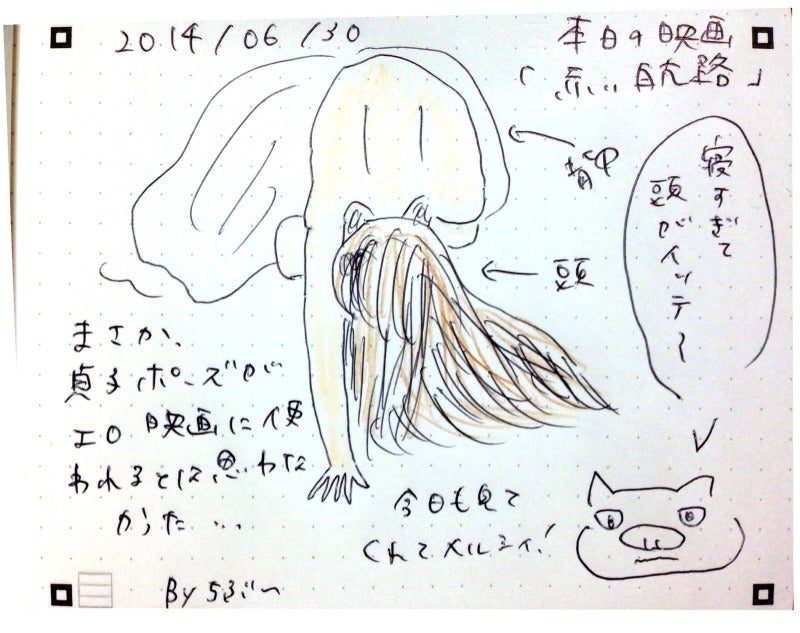 2014/06/30
本日の映画
「赤い航路」
背中
頭
寝すぎて
頭がイッテ〜
まさか、
貞子ポーズが
エロ映画に使
われるとは思わな
かった...
今日も見て
くれてメルシィ!
By ちびぶ〜